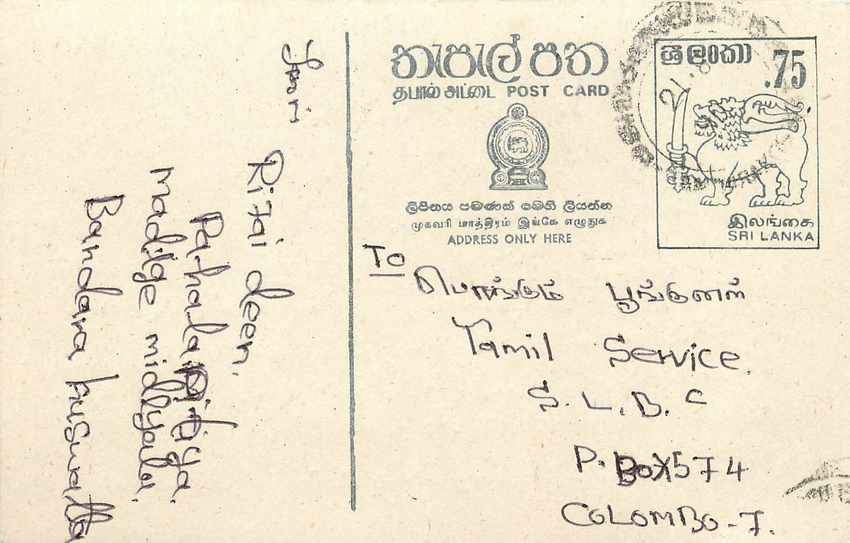 තැපැල් පත
தபால் அட்டை POST CARD
ලිපිනය පමණක් මෙහි ලියන්න
முகவரி மாத்திரம் இங்கே எழுதுக
ADDRESS ONLY HERE
ශ්‍රී ලංකා
.75
இலங்கை
SRI LANKA
21.8
To
பொங்கும் பூங்குனல்
Tamil Service.
S. L. B. C
P. BOX 574
COLOMBO-7.
Rifai deen.
Pahala
madige midiyala.
Bandara kuswatta